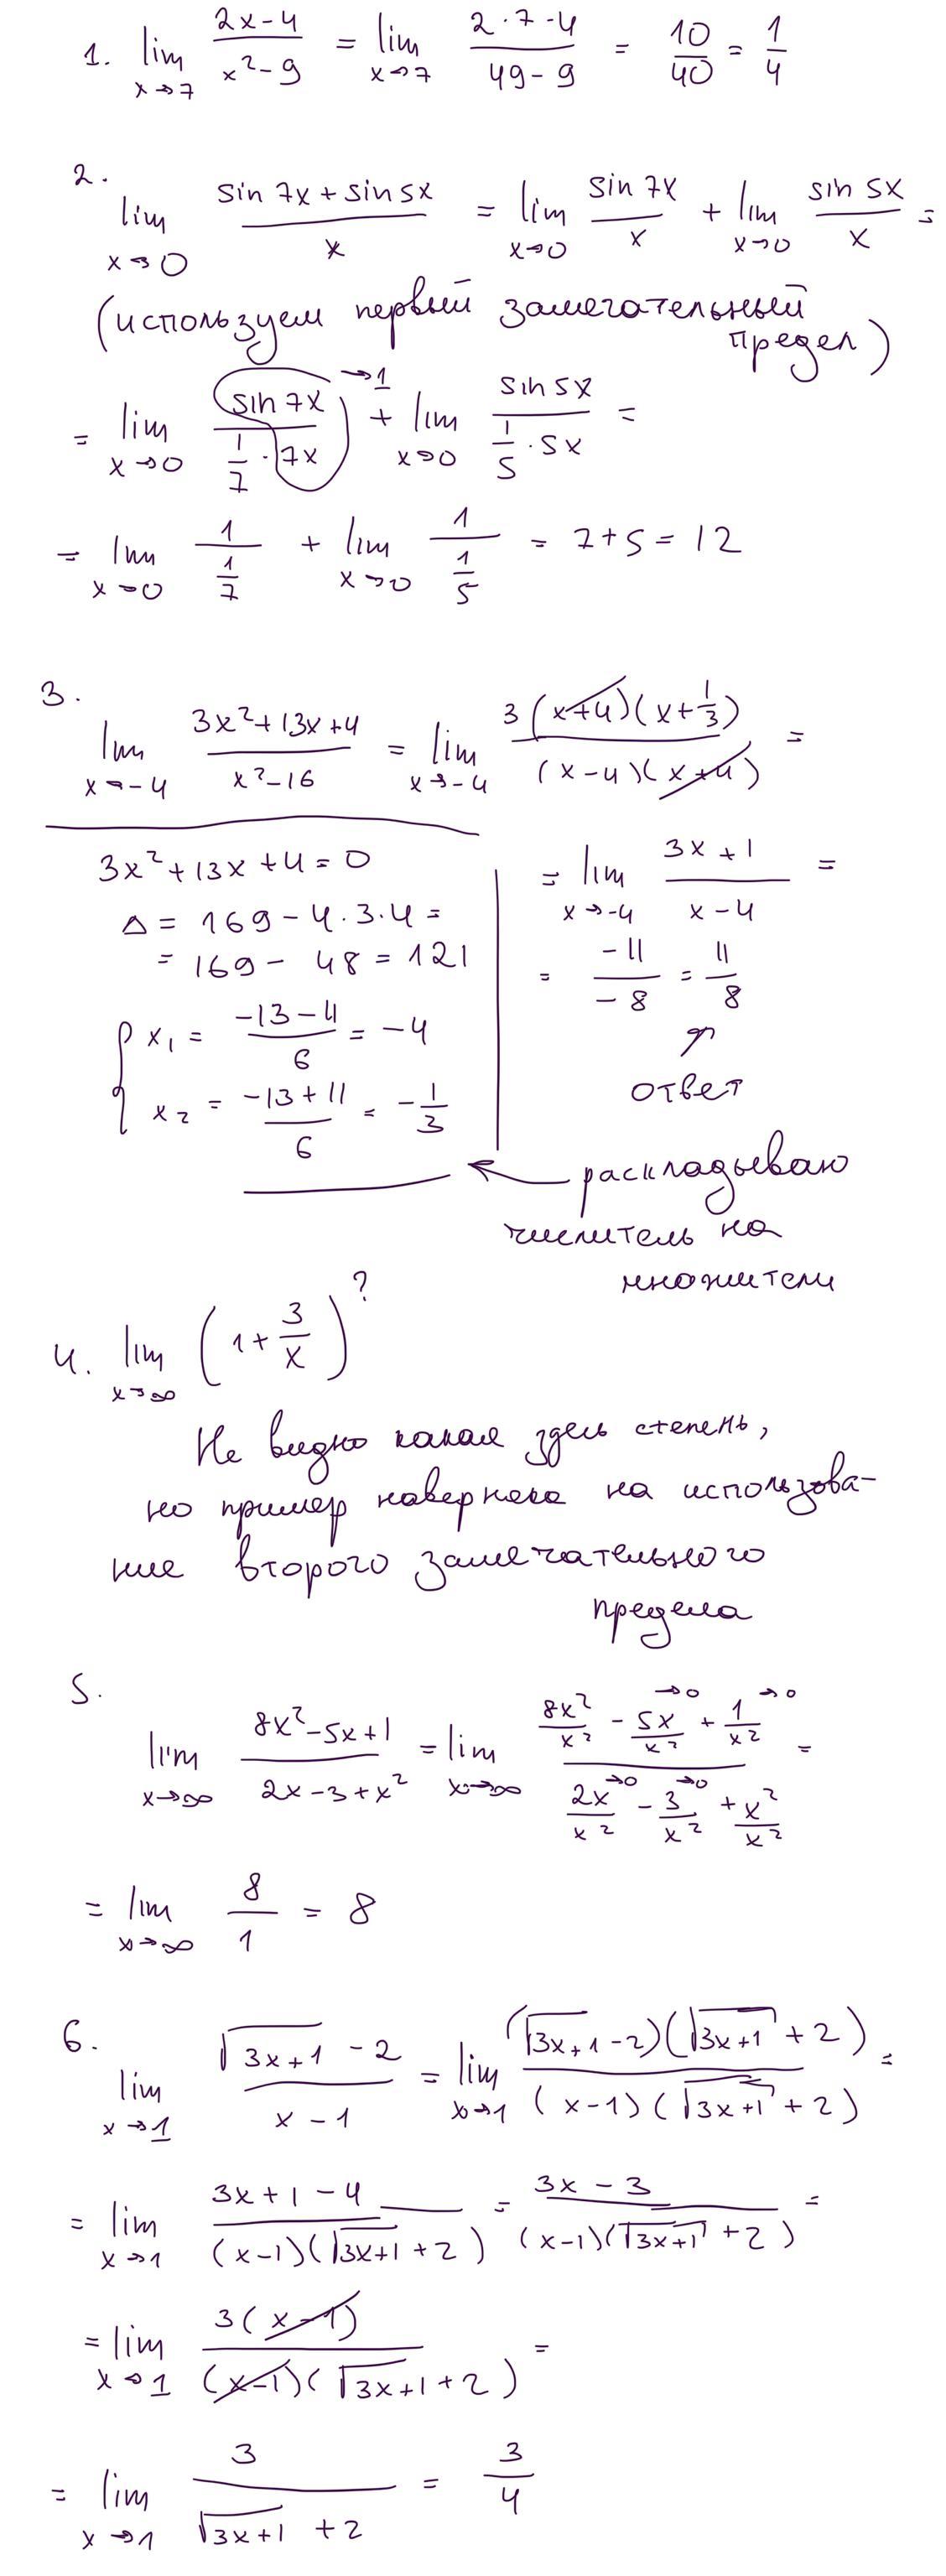 1. lim x→7 (2x-4)/(x²-9) = lim x→7 (2·7-4)/(49-9) = 10/40 = 1/4
2.
lim x→0 (sin 7x + sin 5x)/x = lim x→0 (sin 7x)/x + lim x→0 (sin 5x)/x =
(используем первый замечательный
предел)
= lim x→0 (sin 7x)/(1/7 · 7x) →1 + lim x→0 (sin 5x)/(1/5 · 5x) =
= lim x→0 1/(1/7) + lim x→0 1/(1/5) = 7+5 = 12
3.
lim x→-4 (3x²+13x+4)/(x²-16) = lim x→-4 3(x+4)(x+1/3)/((x-4)(x+4)) =
3x²+13x+4=0
Δ = 169-4·3·4 =
= 169 - 48 = 121
{ x₁ = (-13-11)/6 = -4
x₂ = (-13+11)/6 = -1/3
= lim x→-4 (3x+1)/(x-4) =
= -11/-8 = 11/8
↑
ответ
← раскладываю
числитель на
множители
4. lim x→∞ (1+3/x)^?
Не видно какая здесь степень,
но пример наверняка на использова-
ние второго замечательного
предела
5.
lim x→∞ (8x²-5x+1)/(2x-3+x²) = lim x→∞ (8x²/x² - 5x/x² →0 + 1/x² →0)/(2x/x² →0 - 3/x² →0 + x²/x²) =
= lim x→∞ 8/1 = 8
6.
lim x→1 (√(3x+1) - 2)/(x-1) = lim x→1 (√(3x+1) - 2)(√(3x+1) + 2)/((x-1)(√(3x+1) + 2)) =
= lim x→1 (3x+1-4)/((x-1)(√(3x+1) + 2)) = (3x-3)/((x-1)(√(3x+1) + 2)) =
= lim x→1 3(x-1)/((x-1)(√(3x+1) + 2)) =
= lim x→1 3/(√(3x+1) + 2) = 3/4